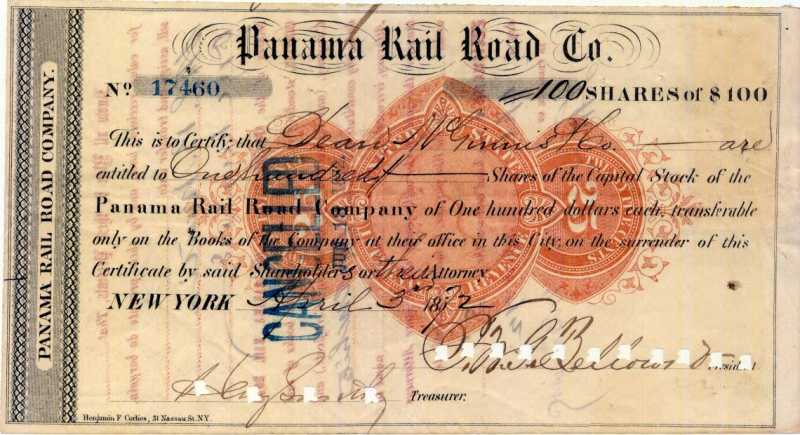 Panama Rail Road Co.
No 17460 100 SHARES of $100
This is to Certify, that Dean & Co. are
entitled to One hundred Shares of the Capital Stock of the
Panama Rail Road Company of One hundred dollars each, transferable
only on the Books of the Company at their office in this City, on the surrender of this
Certificate by said Shareholders or their Attorney
NEW YORK April 3d 1872
President
Treasurer.
Benjamin F Corlies, 31 Nassau St. N.Y.
PANAMA RAIL ROAD COMPANY.
CANCELLED
UNITED STATES
REVENUE
TWENTY FIVE CENTS
25